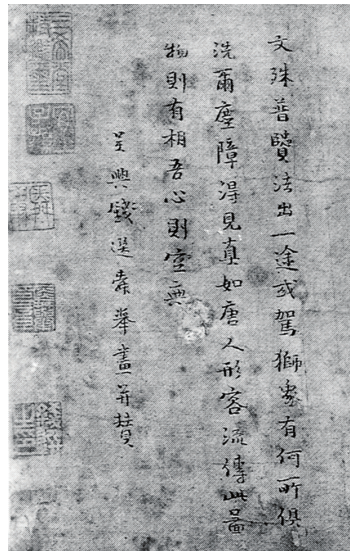 文殊普賢法出一途或駕獅象有何所俱
洗爾塵障得見真如唐人形容流傳此圖
物則有相吾心則空無
吳興錢選舜舉畫并贊